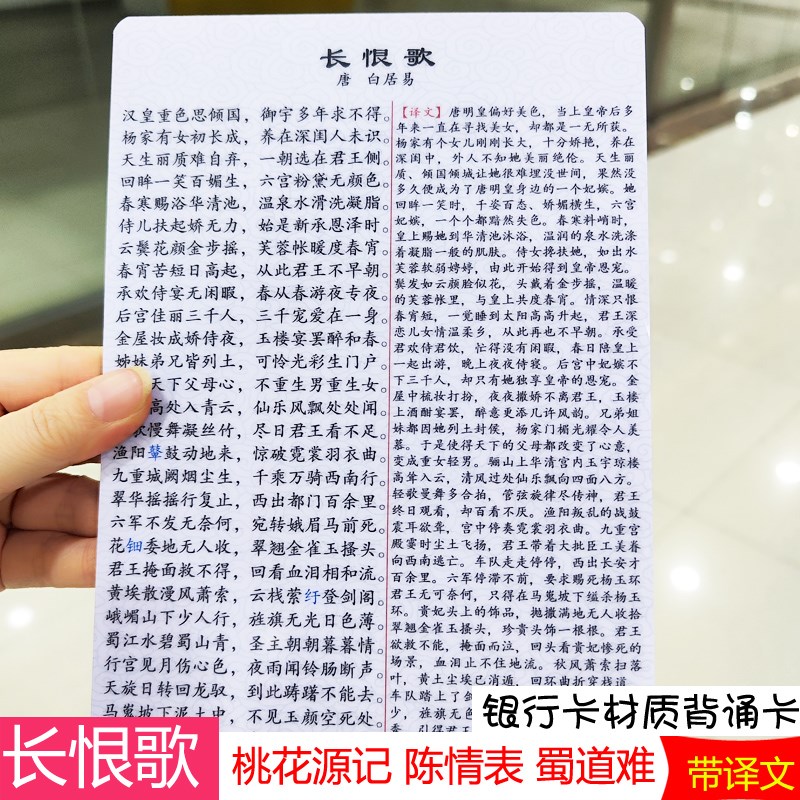 长恨歌
唐 白居易
汉皇重色思倾国，御宇多年求不得。
杨家有女初长成，养在深闺人未识。
天生丽质难自弃，一朝选在君王侧。
回眸一笑百媚生，六宫粉黛无颜色。
春寒赐浴华清池，温泉水滑洗凝脂。
侍儿扶起娇无力，始是新承恩泽时。
云鬓花颜金步摇，芙蓉帐暖度春宵。
春宵苦短日高起，从此君王不早朝。
承欢侍宴无闲暇，春从春游夜专夜。
后宫佳丽三千人，三千宠爱在一身。
金屋妆成娇侍夜，玉楼宴罢醉和春。
姊妹弟兄皆列土，可怜光彩生门户。
天下父母心，不重生男重生女。
高处入青云，仙乐风飘处处闻。
慢舞凝丝竹，尽日君王看不足。
渔阳鼙鼓动地来，惊破霓裳羽衣曲。
九重城阙烟尘生，千乘万骑西南行。
翠华摇摇行复止，西出都门百余里。
六军不发无奈何，宛转娥眉马前死。
花钿委地无人收，翠翘金雀玉搔头。
君王掩面救不得，回看血泪相和流。
黄埃散漫风萧索，云栈萦纡登剑阁。
峨嵋山下少人行，旌旗无光日色薄。
蜀江水碧蜀山青，圣主朝朝暮暮情。
行宫见月伤心色，夜雨闻铃肠断声。
天旋日转回龙驭，到此踌躇不能去。
马嵬坡下泥土中，不见玉颜空死处。
【译文】唐明皇偏好美色，当上皇帝后多
年来一直在寻找美女，却都是一无所获。
杨家有个女儿刚刚长大，十分娇艳，养在
深闺中，外人不知她美丽绝伦。天生丽
质、倾国倾城让她很难埋没世间，果然没
多久便成为了唐明皇身边的一个妃嫔。她
回眸一笑时，千姿百态、娇媚横生，六宫
妃嫔，一个个都黯然失色。春寒料峭时，
皇上赐她到华清池沐浴，温润的泉水洗涤
着凝脂一般的肌肤。侍女搀扶她，如出水
芙蓉软弱娉婷，由此开始得到皇帝恩宠。
鬓发如云颜脸似花，头戴着金步摇，温暖
的芙蓉帐里，与皇上共度春宵。情深只恨
春宵短，一觉睡到太阳高高升起，君王深
恋儿女情温柔乡，从此再也不早朝。承受
君欢侍君饮，忙得没有闲暇，春日陪皇上
一起出游，晚上夜夜侍寝。后宫中妃嫔不
下三千人，却只有她独享皇帝的恩宠。金
屋中梳妆打扮，夜夜撒娇不离君王，玉楼
上酒酣宴罢，醉意更添几许风韵。兄弟姐
妹都因她列土封侯，杨家门楣光耀令人羡
慕。于是使得天下的父母都改变了心意，
变成重女轻男。骊山上华清宫内玉宇琼楼
高耸入云，清风过处仙乐飘向四面八方。
轻歌曼舞多合拍，管弦旋律尽传神，君王
终日观看，却百看不厌。渔阳叛乱的战鼓
震耳欲聋，宫中停奏霓裳羽衣曲。九重宫
殿霎时尘土飞扬，君王带着大批臣工美眷
向西南逃亡。车队走走停停，西出长安才
百余里。六军停滞不前，要求赐死杨玉环
君王无可奈何，只得在马嵬坡下缢杀杨玉
环。贵妃头上的饰品，抛撒满地无人收拾
翠翘金雀玉搔头，珍贵头饰一根根。君王
欲救不能，掩面而泣，回头看贵妃惨死的
场景，血泪止不住地流。秋风萧索扫落
叶，黄土尘埃已消遁，回环曲折穿栈道
车队踏上了剑
少，旌旗无色
香，引得君王
银行卡材质背诵卡
长恨歌
桃花源记 陈情表 蜀道难
带译文